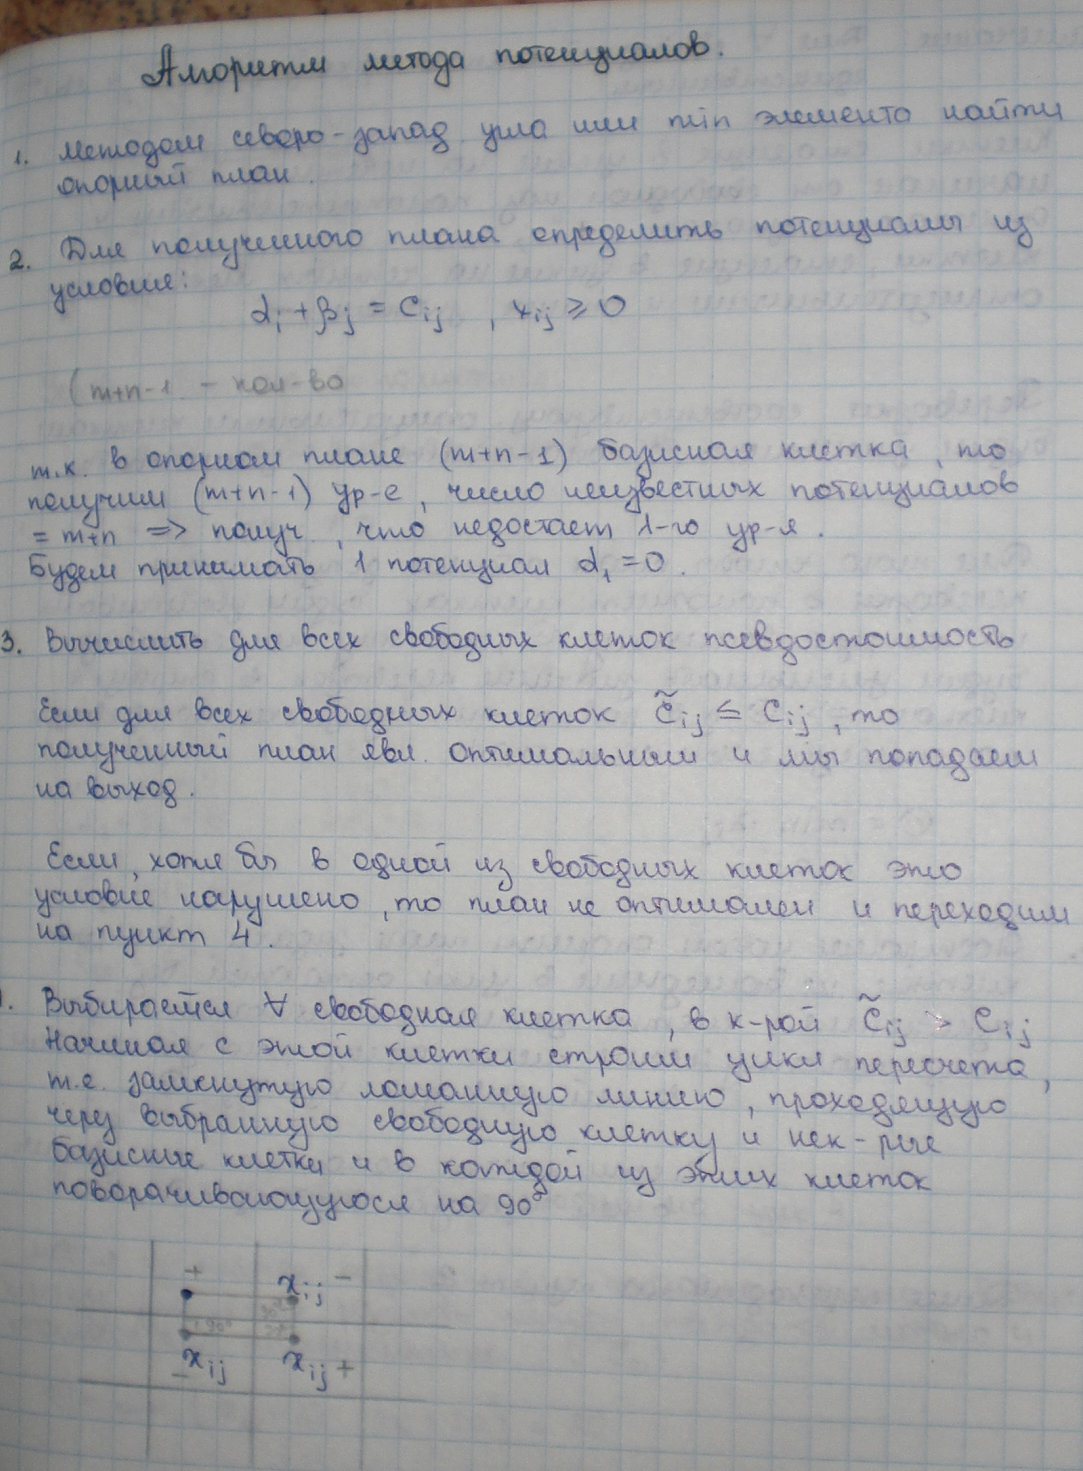 Алгоритм метода потенциалов.
1. Методом северо-запад. угла или min элемента найти
опорный план.
2. Для полученного плана определить потенциалы из
условия:
αi + βj = Cij , xij ≥ 0
(m+n-1 - кол-во
т.к. в опорном плане (m+n-1) базисная клетка, то
получим (m+n-1) ур-е, число неизвестных потенциалов
= m+n => получ., что недостает 1-го ур-я.
Будем принимать 1 потенциал α₁ = 0.
3. Вычислить для всех свободных клеток псевдостоимость
Если для всех свободных клеток C̃ij ≤ Cij, то
полученный план явл. оптимальным и мы попадаем
на выход.
Если, хотя бы в одной из свободных клеток это
условие нарушено, то план не оптимален и переходим
на пункт 4.
Выбирается ∀ свободная клетка, в к-рой C̃ij > Cij
Начиная с этой клетки строим цикл пересчета,
т.е. замкнутую ломанную линию, проходящую
через выбранную свободную клетку и нек-рые
базисные клетки и в каждой из этих клеток
поворачивающуюся на 90°
+ xij -
90°
- xij xij +